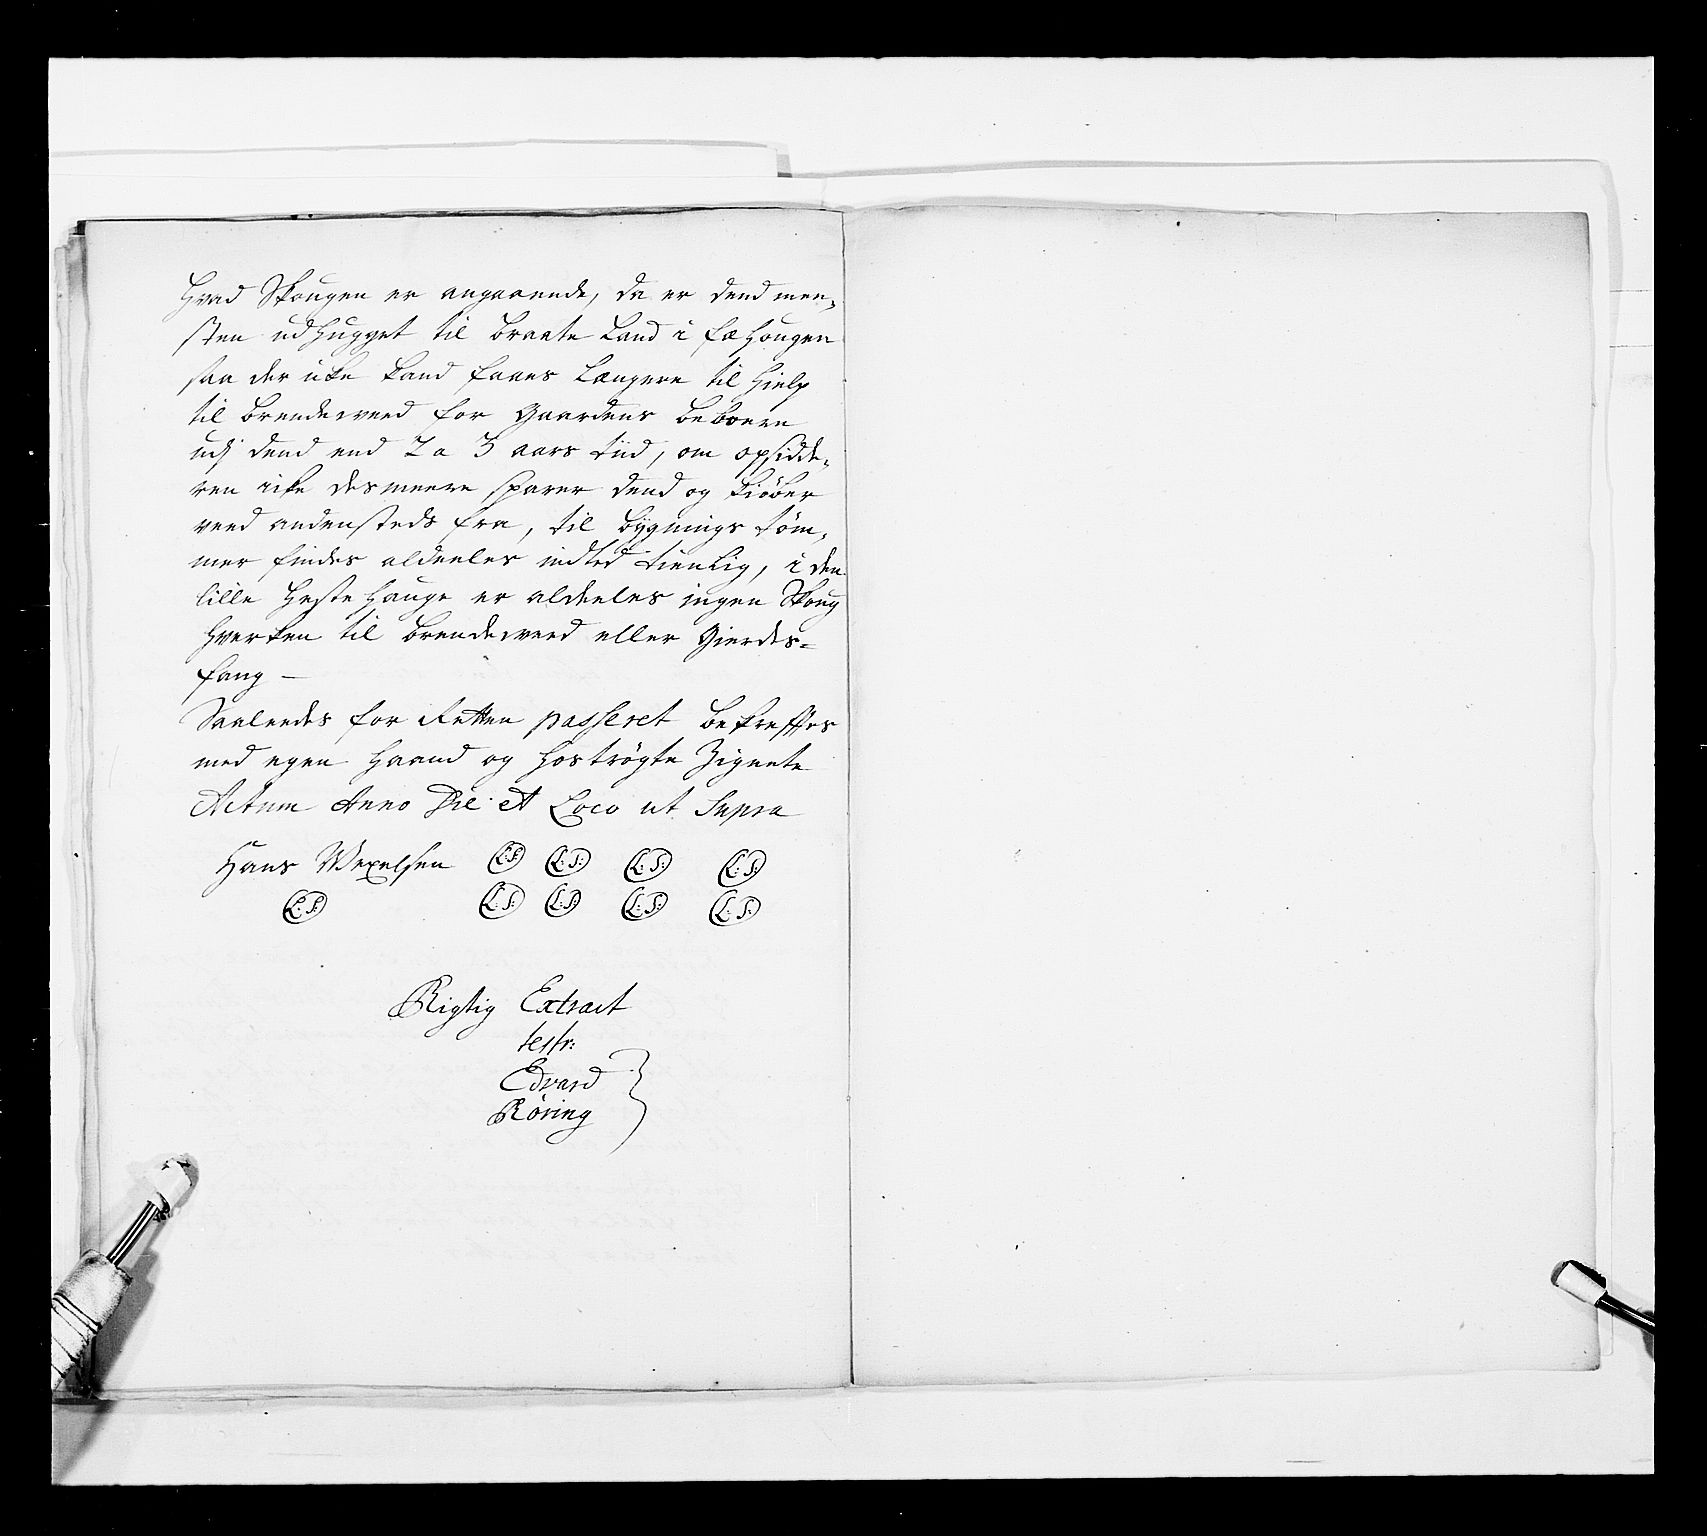 Hvad Skougen er angaaende, da er dend men-
sten udhugget til braate Land i fæ hougen
saa der icke kand faaes Længere til Hielp
til brendeveed for Gaardens beboere
udj dend end 2 a 3 aars tiid, om opsidde-
ren icke desmeere sparer dend og kiøber
veed andensteds fra, til bygnings tøm-
mer findes aldeeles indted tienlig, i den
lille Heste Hauge er aldeeles ingen Skoug
hverken til brendeveed eller Gierdes=
fang —
Saaleedes for Retten passeret bekreftes
med egen Haand og hostrøgte Zignete
Actum Anno Die et Loco ut Supra
Hans Wexelsen (L:S:) (L:S:) (L:S:) (L:S:)
(L:S:) (L:S:) (L:S:) (L:S:) (L:S:)
Rigtig Extract
testr:
Edvard
Röring